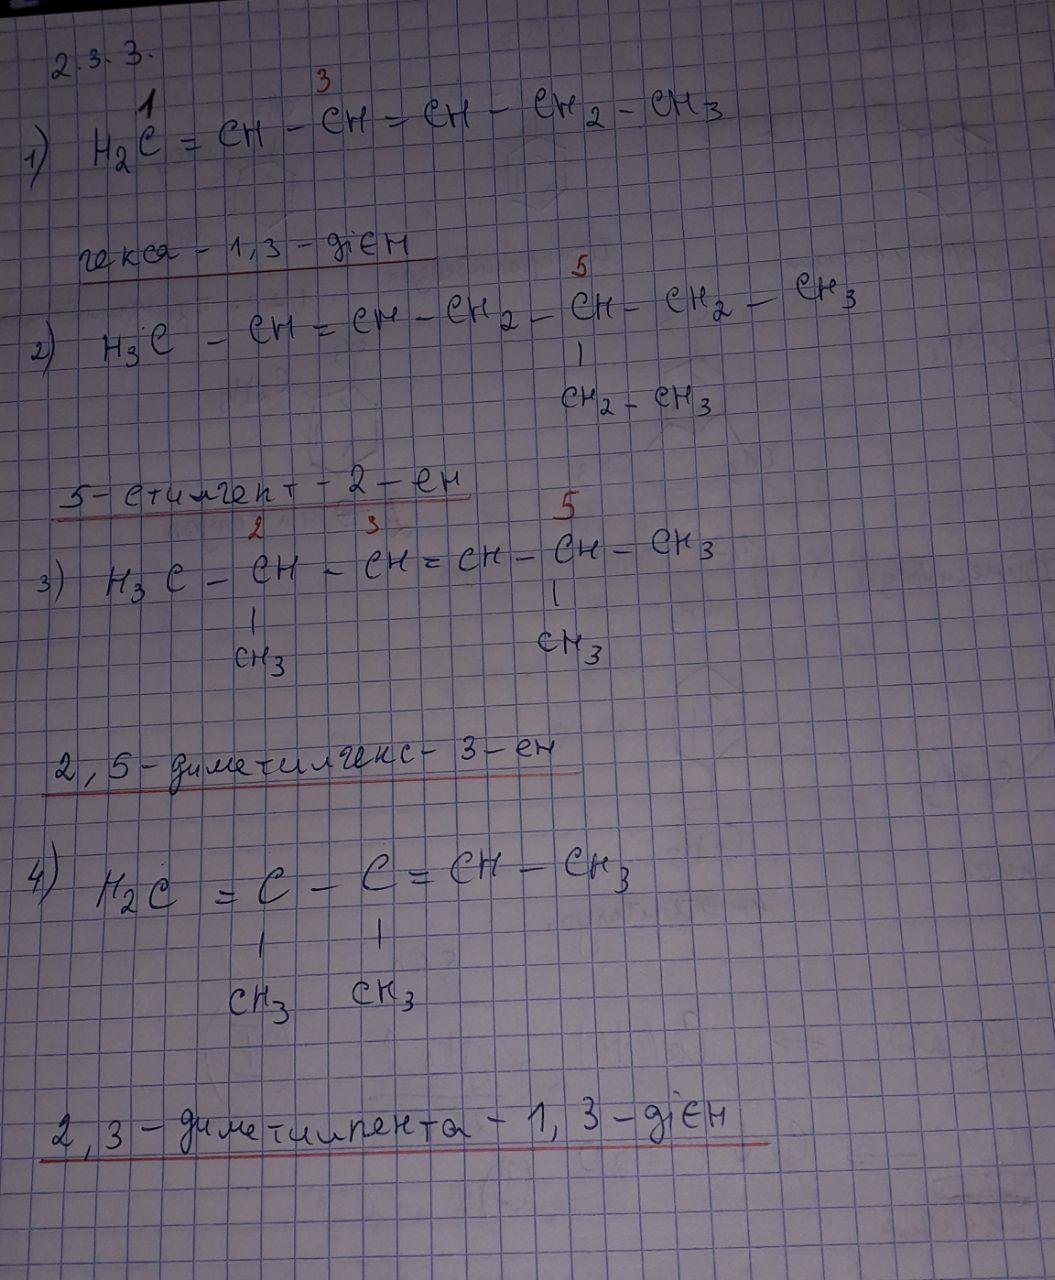 2.3.3.
1 3
1) H₂C = CH - CH = CH - CH₂ - CH₃
гекса - 1,3 - дієн
5
2) H₃C - CH = CH - CH₂ - CH - CH₂ - CH₃
|
CH₂ - CH₃
5 - етилгепт - 2 - ен
2 3 5
3) H₃C - CH - CH = CH - CH - CH₃
| |
CH₃ CH₃
2,5 - диметилгекс - 3 - ен
4) H₂C = C - C = CH - CH₃
| |
CH₃ CH₃
2,3 - диметилпента - 1,3 - дієн